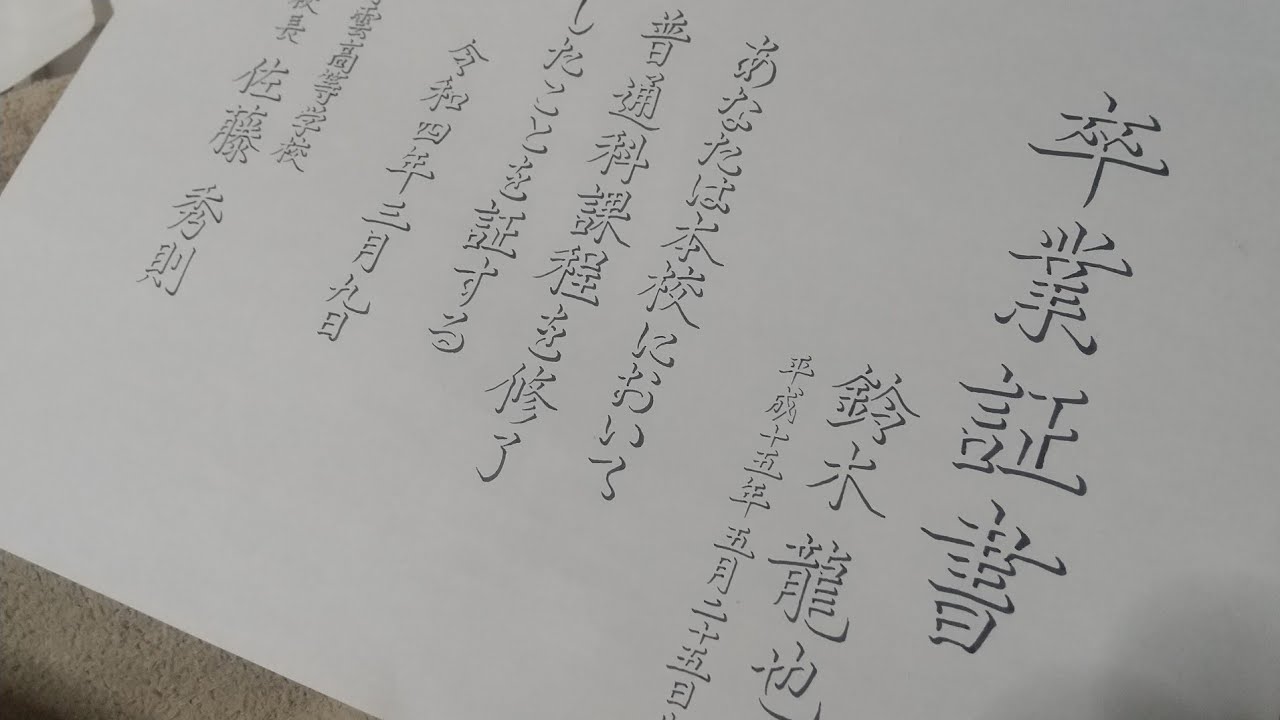 卒業証書
鈴木 龍也
平成十五年五月二十五日
あなたは本校において
普通科課程を修了
したことを証する
令和四年三月九日
雲高等学校
校長 佐藤 秀則